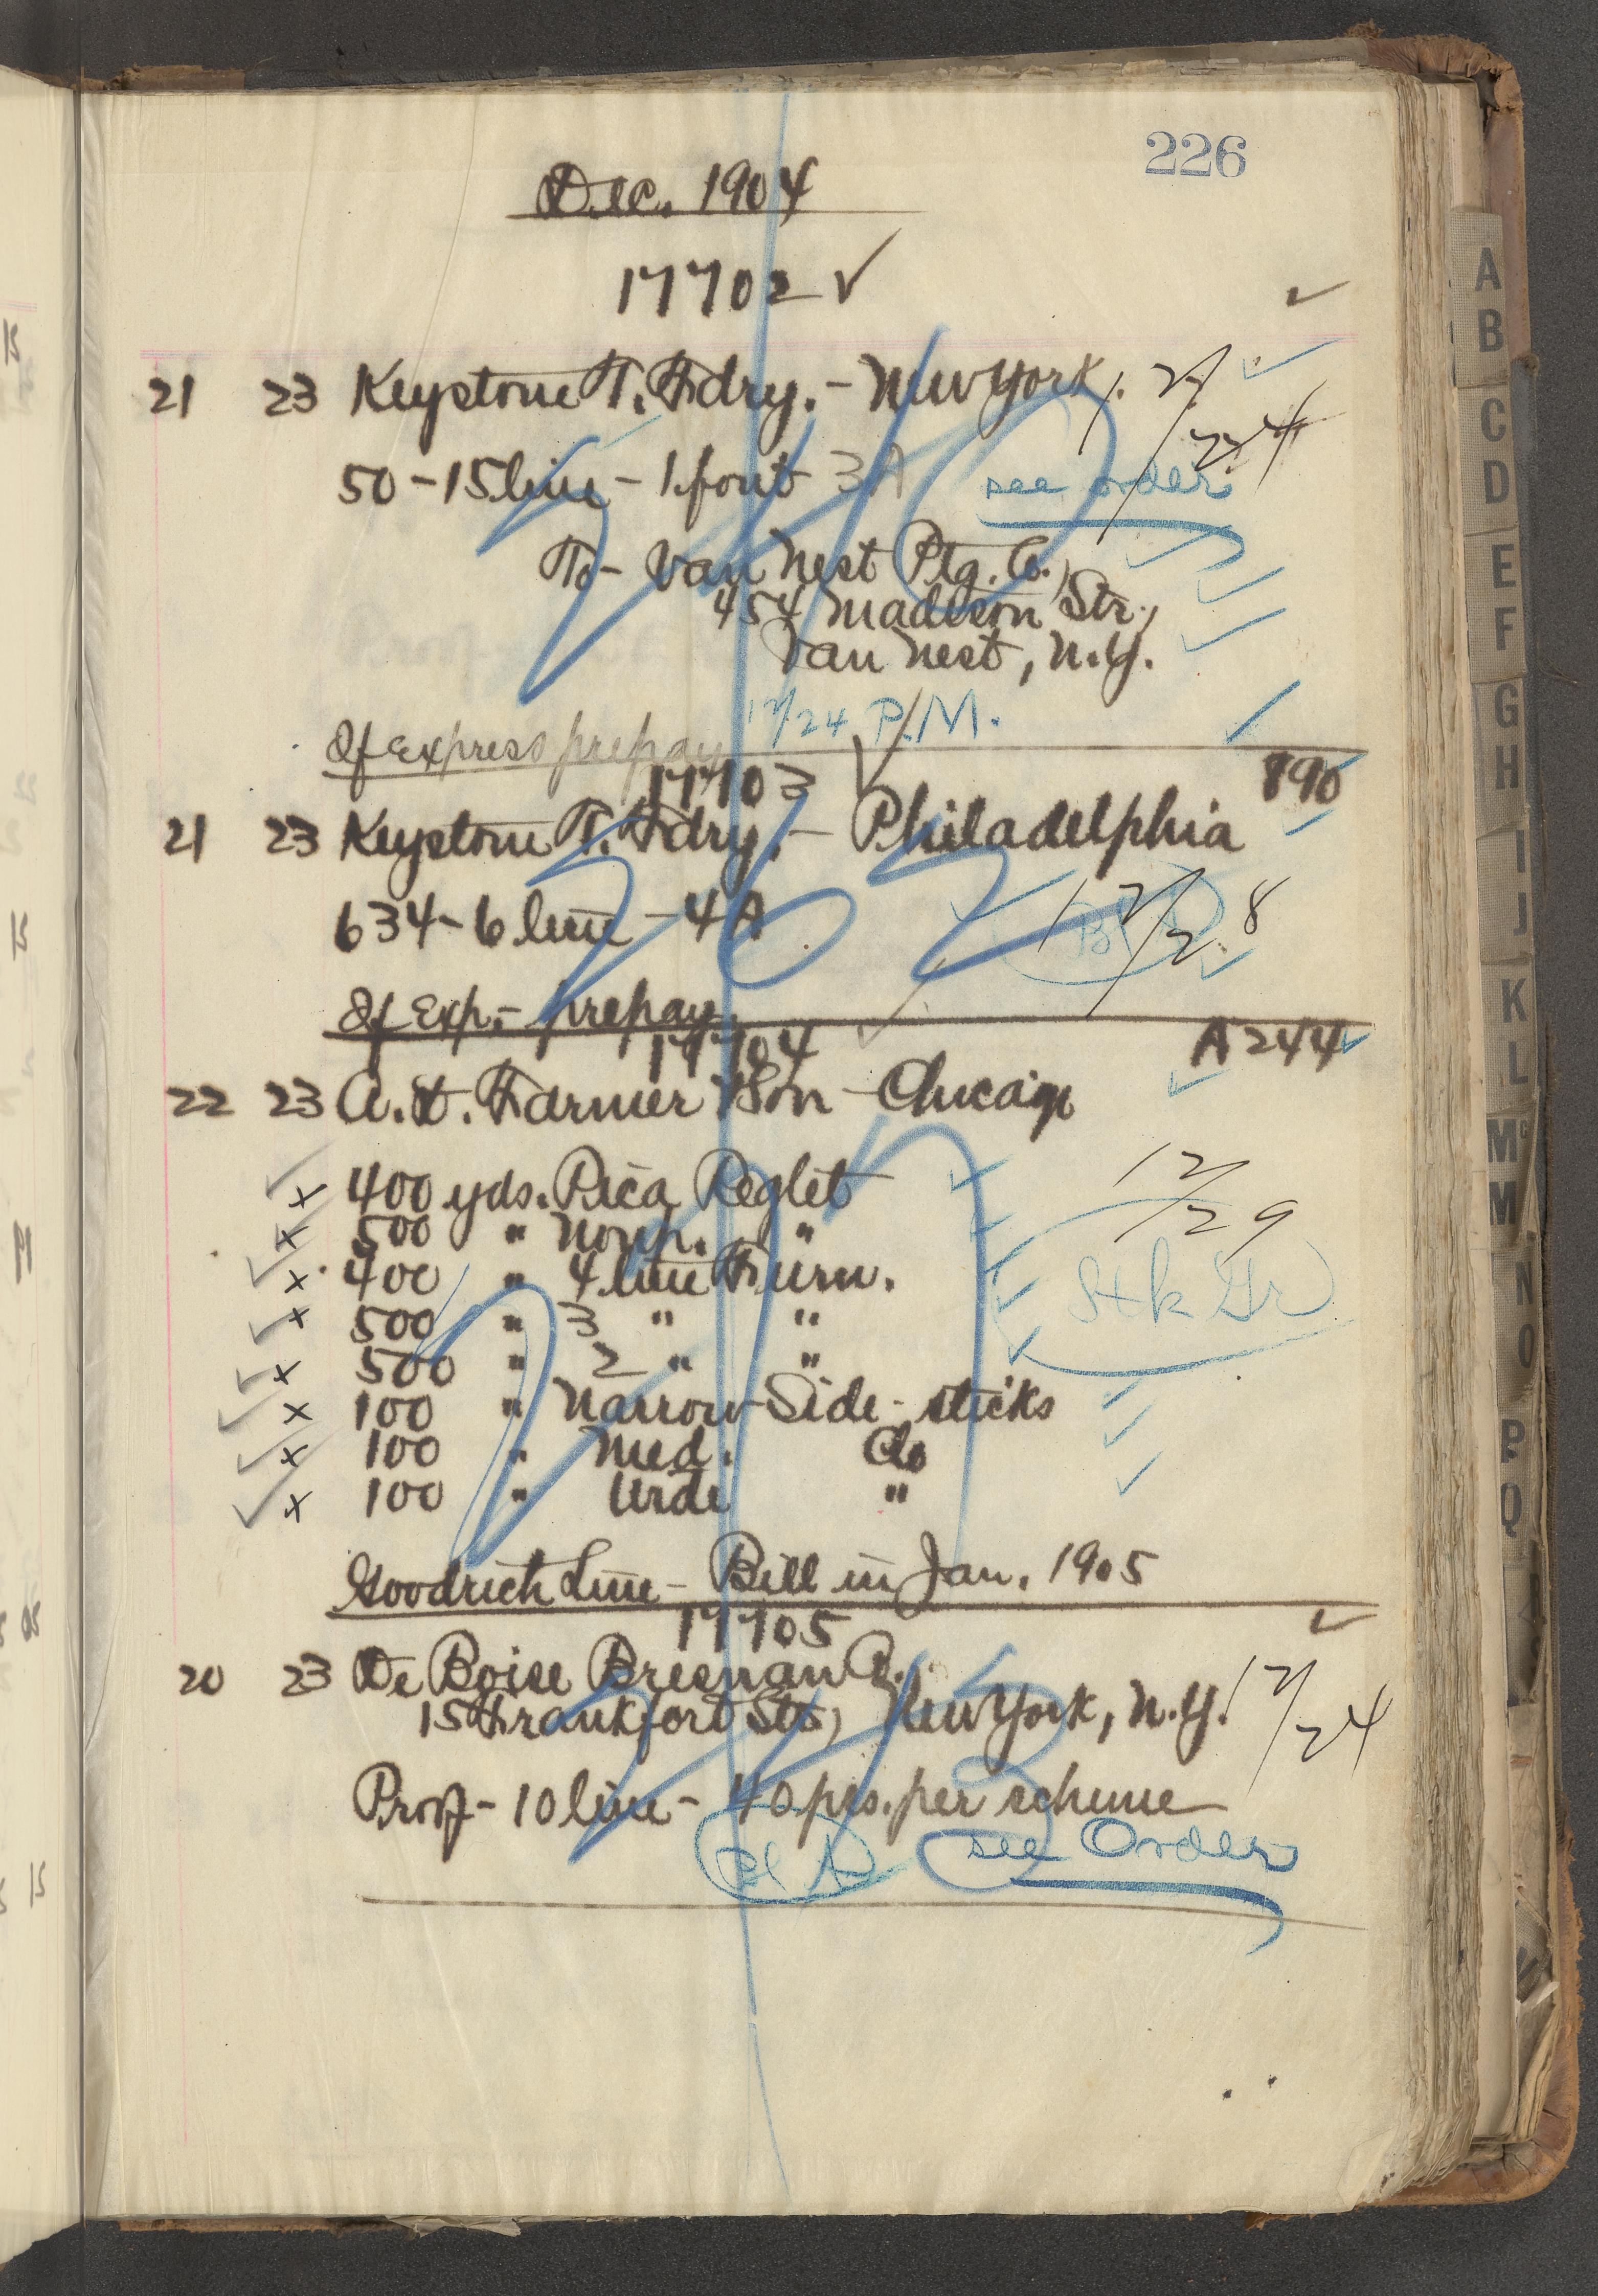 226
Dec. 1904
17702 ✓
21 23 Keystone T. Fdry. - New York. 12/24
50 - 15 line - 1 font 3A see order
To - Van Nest Ptg. Co.,
454 Madison Str.,
Van Nest, N.Y.
12/24 P.M.
If Express prepay
17703 890
21 23 Keystone T. Fdry. - Philadelphia
634 - 6 line - 4A 12/28
If Exp. - prepay
17704 A 244
22 23 A. D. Farmer & Son - Chicago
x 400 yds. Pica Reglet 12/29
x 500 " Nonp. "
x 400 " 4 line Furn. Stk Gr
x 500 " 3 " "
x 500 " 2 " "
x 100 " Narrow Side-sticks
x 100 " Med. do
x 100 " Wide "
Goodrich Line - Bill in Jan. 1905
17705
20 23 De Boise Bresnan Co. 12/24
15 Frankfort Str, New York, N.Y.
Prop - 10 line - 40 pcs. per scheme
see Order
A
B
C
D
E
F
G
H
I
J
K
L
Mc
M
N
O
P
Q